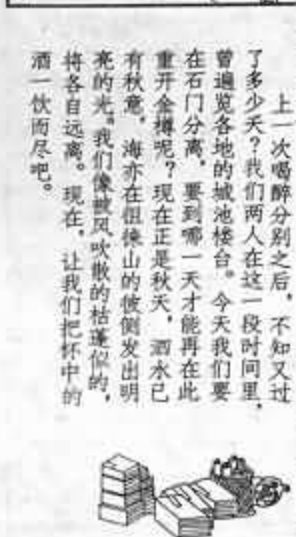 上一次喝醉分别之后，不知又过
了多少天？我们两人在这一段时间里，
曾遍览各地的城池楼台。今天我们要
在石门分离，要到哪一天才能再在此
重开金樽呢？现在正是秋天，泗水已
有秋意，海亦在徂徕山的彼侧发出明
亮的光。我们像被风吹散的枯蓬似的，
将各自远离。现在，让我们把怀中的
酒一饮而尽吧。